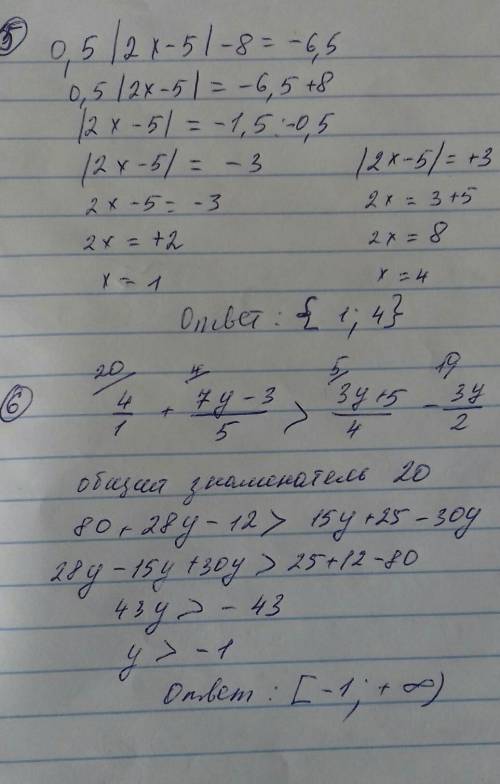 5
0,5 |2x-5| -8 = -6,5
0,5 |2x-5| = -6,5 +8
|2x-5| = -1,5 : -0,5
|2x-5| = -3 |2x-5| = +3
2x-5 = -3 2x = 3+5
2x = +2 2x = 8
x = 1 x = 4
Ответ : { 1; 4}
20/ 4/ 5/ 10/
6 4/1 + (7y-3)/5 > (3y+5)/4 - 3y/2
общий знаменатель 20
80 + 28y - 12 > 15y + 25 - 30y
28y - 15y + 30y > 25 + 12 - 80
43y > - 43
y > -1
Ответ : [ -1; + ∞)